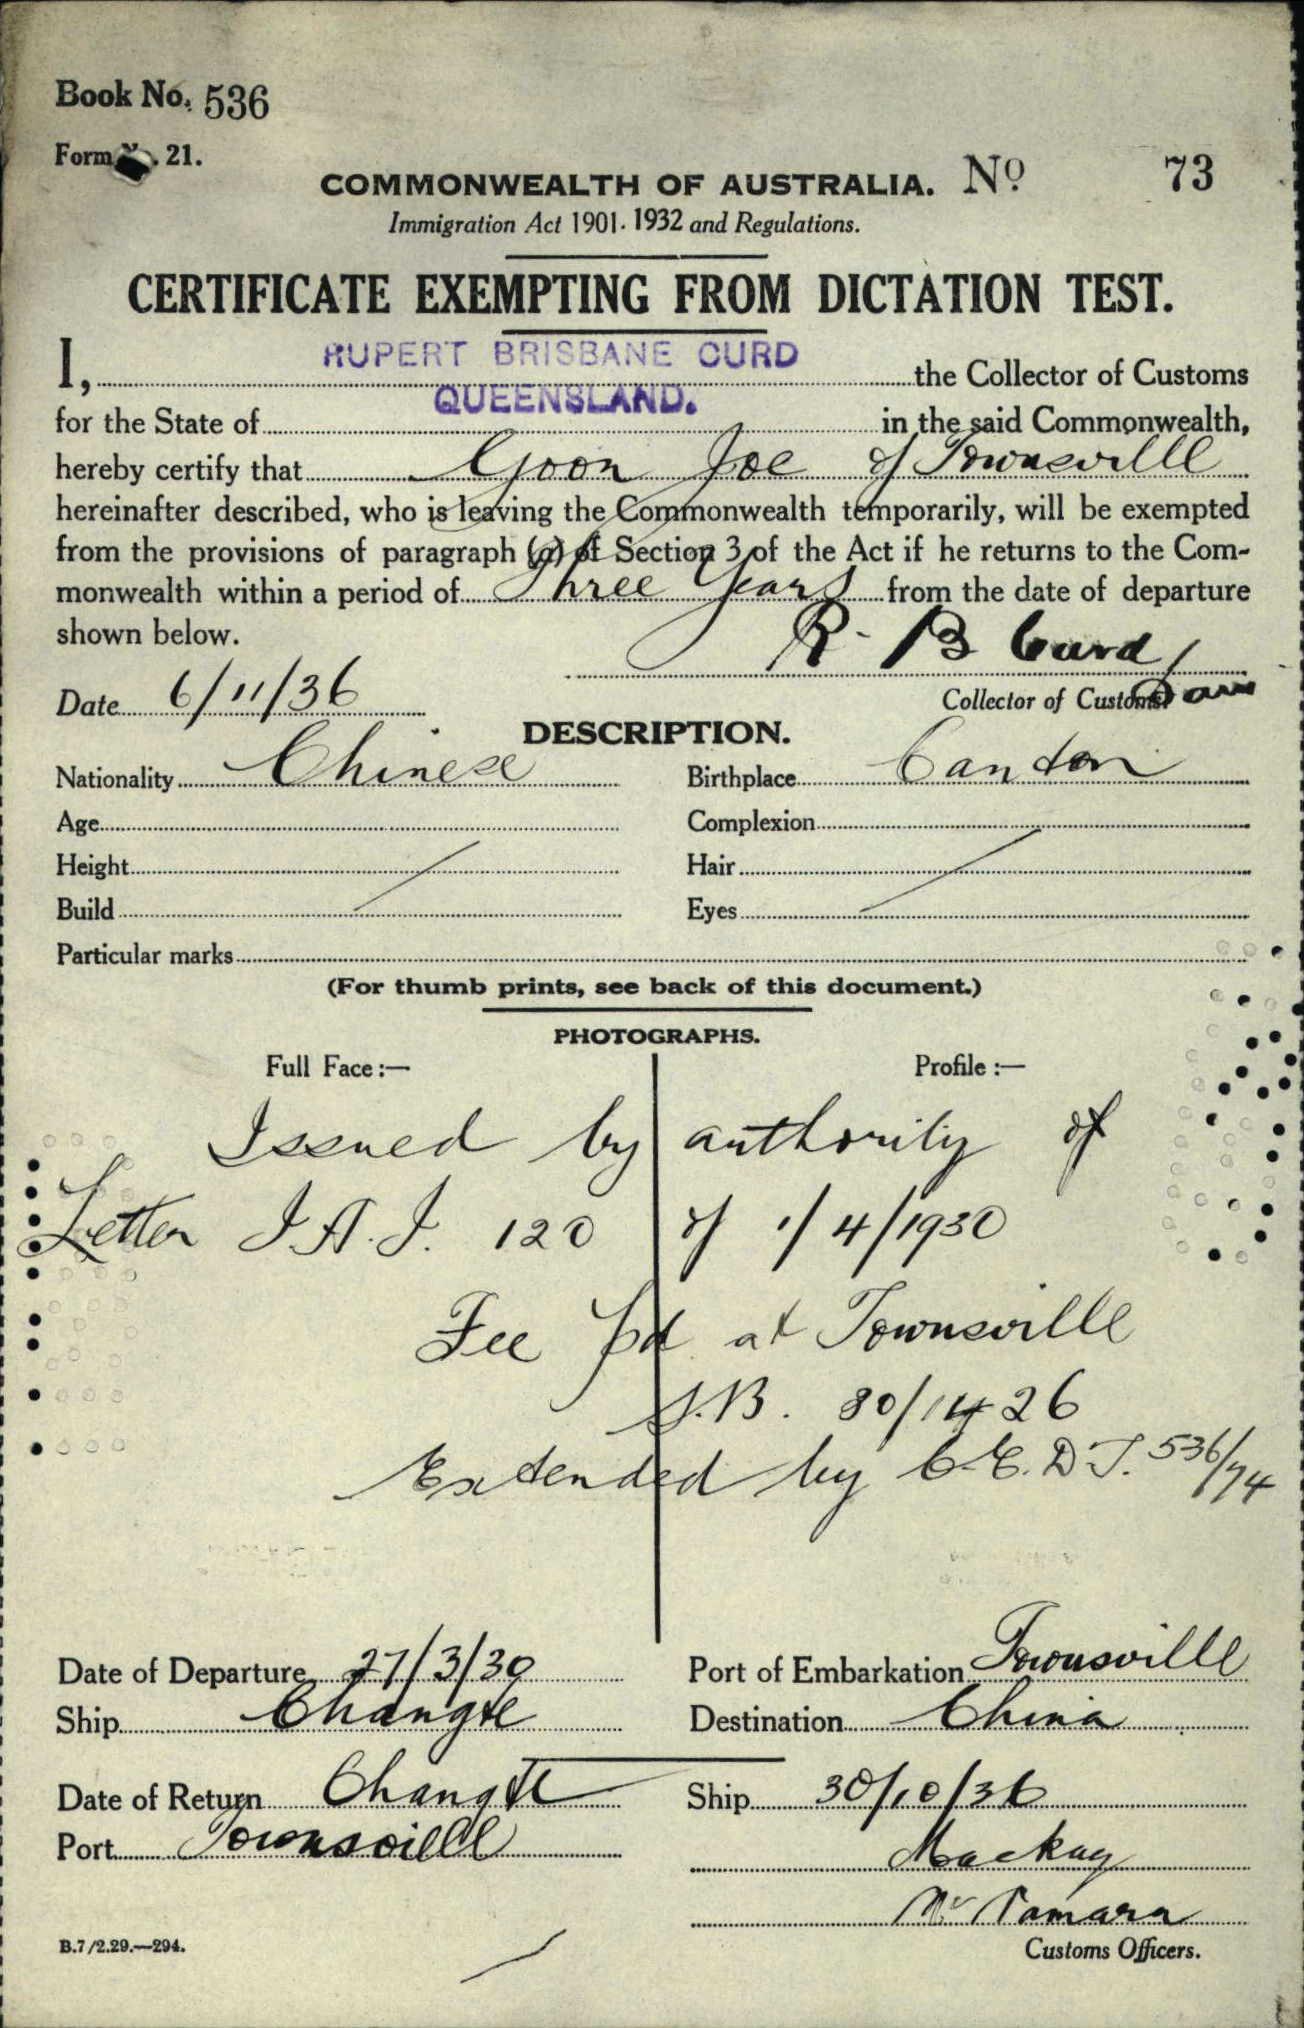 Book No. 536
Form No. 21.
COMMONWEALTH OF AUSTRALIA. No 73
Immigration Act 1901-1932 and Regulations.
CERTIFICATE EXEMPTING FROM DICTATION TEST.
I, RUPERT BRISBANE CURD the Collector of Customs
for the State of QUEENSLAND. in the said Commonwealth,
hereby certify that Goon Joe of Townsville
hereinafter described, who is leaving the Commonwealth temporarily, will be exempted
from the provisions of paragraph (a) of Section 3 of the Act if he returns to the Com-
monwealth within a period of Three Years from the date of departure
shown below.
R. B Curd
Date 6/11/36 Collector of Customs
DESCRIPTION.
Nationality Chinese Birthplace Canton
Age Complexion
Height Hair
Build Eyes
Particular marks
(For thumb prints, see back of this document.)
PHOTOGRAPHS.
Full Face:— Profile:—
Issued by authority of
Letter I.A.J. 120 of 1/4/1930
Fee pd at Townsville
S.B. 30/1426
Extended by C.E.D.T. 536/74
Date of Departure 27/3/30 Port of Embarkation Townsville
Ship Changte Destination China
Date of Return Changte Ship 30/10/36
Port Townsville Mackay
McNamara
B.7/2.29.—294. Customs Officers.